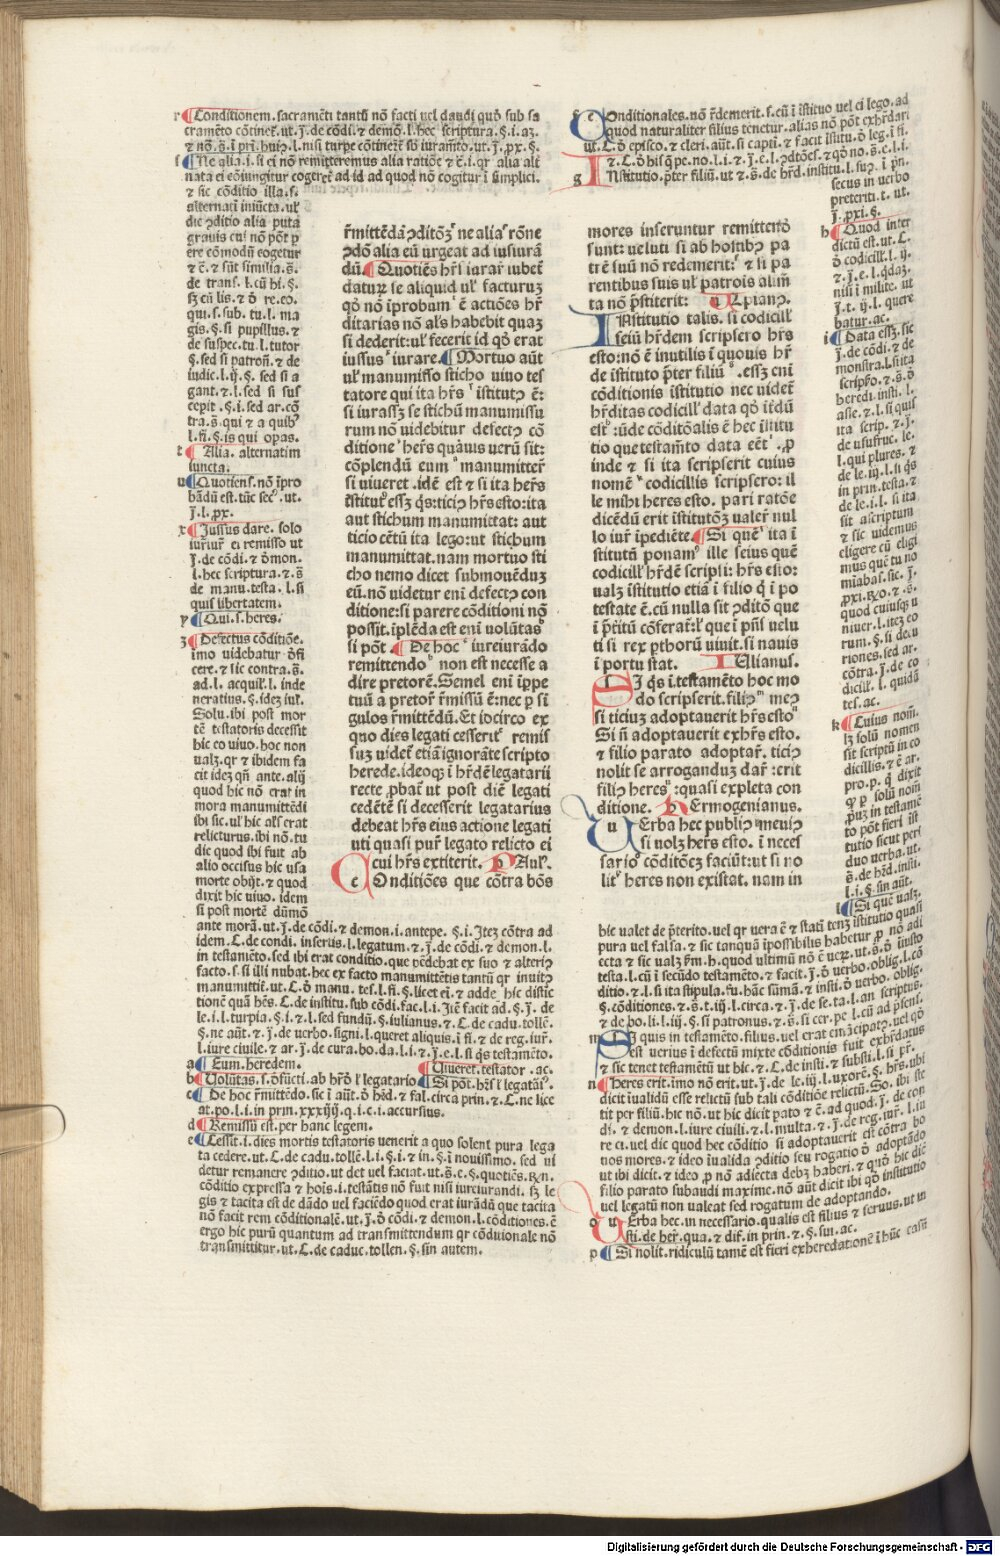 Conditionem. sacramēti tantū nō facti vel dandi quō sub sa
cramēto cōtinet̄. ut. j̄. de cōdi. ⁊ demō. l. hec scriptura. §. i.
Ne alia. i. si ei nō remitteremus alia ratiōe
nata ei cōiungitur cogeret̄ ad id ad quod nō cogitur i simplici.
⁊ sic cōditio illa. s.
alternati iniūcta. ul᷒
dic ꝯditio alia puta
grauis cui nō pōt ꝑ
ere cōmodū cogetur
⁊ c̄. ⁊ sūt similia. s̄.
de trans. l. cū hi. §.
sꝫ cū lis. ⁊ ō re. eo.
qui. s. sub. tu. l. ma
gis. §. si pupillus. ⁊
de suspec. tu. l. tutor
§. sed si patron̄. ⁊ de
iudic. l. ij. §. sed si a
gant. ⁊ l. sed si sus
cepit. §. i. sed ar. cō
tra. s̄. qui ⁊ a quib᷒
l. fi. §. is qui opas.
Alia. alternatim
iuncta.
Quotiens. nō īpro
bādū est. tūc sec᷒. ut.
j̄. l. ꝓx.
Iussus dare. solo
iur̄iur̄ ei remisso ut
j̄. de cōdi. ⁊ ōmon.
l. hec scriptura. ⁊ s̄
de manu. testa. l. si
quis libertatem.
Qui. s. heres.
Defectus cōditiōe.
imo uidebatur ōfi
cere. ⁊ sic contra. s̄.
ad. l. acquil. l. inde
neratius. §. ideꝫ iul.
Solu. ibi post mor
tē testatoris decessit
hic eo uiuo. hoc non
ualꝫ. qr ⁊ ibidem fa
cit ideꝫ qn̄ ante. alij
quod hic nō erat in
mora manumittēdi
ibi sic. ul᷒ hic al̄s erat
relicturus. ibi nō. tu
dic quod ibi fuit ab
alio occisus hic usa
morte obijt. ⁊ quod
dixit hic uiuo. idem
si post mortē dūmō
ante morā. ut. j̄. de cōdi. ⁊ demon. i. antepe. §. i. Iteꝫ cōtra ad
idem. C. de condi. insertis l. legatum. ⁊. j̄. de cōdi. ⁊ demon. l.
in testamēto. sed ibi erat conditio. que pēdebat ex suo ⁊ alteriꝰ
facto. s. si illi nubat. hec ex facto manumittētis tantū qr inuitꝰ
manumittit̄. ut. C. ō manu. tes. l. fi. §. licet ei. ⁊ adde hic distic
tionē quā hēs. C. de institu. sub cōdi. fac. l. i. Itē facit ad. §. j̄. de
le. i. l. turpia. §. i. ⁊ l. sed fundū. §. iulianus. ⁊. C. de cadu. tollē.
§. ne aūt. ⁊. j̄. de uerbo. signi. l. queret aliquis. i fi. ⁊ de reg. iur̄.
l. iure ciuile. ⁊ ar. j̄. de cura. bo. da. l. i. ⁊. j̄. e. l. si qs testamēto.
Eum. heredem. Uiueret. testator. ac.
Volūtas. s. ōfūcti. ab hr̄ō l᷒ legatario Si pōt. hr̄s l᷒ legatā.
De hoc r̄mittēdo. sic i aūt. ō hr̄d. ⁊ fal. circa prin. ⁊. C. ne lice
at. po. l. i. in prin. xxxiiij. q. i. c. i. accursius.
Remissū est. per hanc legem.
Cessit. i. dies mortis testatoris uenerit a quo solent pura lega
ta cedere. ut. C. de cadu. tollē. l. i. §. i. ⁊ in. §. i nouissimo. sed ui
detur remanere ꝯditio. ut det uel faciat. ut. s̄. e. §. quotiēs. R̄n.
cōditio expressa ⁊ hōis. i. testātis nō fuit nisi iureiurandi. sꝫ le
gis ⁊ tacita est de dādo uel faciēdo quod erat iurādū que tacita
nō facit rem cōditionalē. ut. j̄. ō cōdi. ⁊ demon. l. cōditiones. ē
ergo hic purū quantum ad transmittendum qr cōditionale nō
transmittitur. ut. C. de caduc. tollen. §. sin autem.
r̄mittēda ꝯditōꝫ ne alia rōne
ꝯdō alia eū urgeat ad iusiurā
dū. Quotiēs hr̄s iurar̄ iubet̄
datuꝝ se aliquid ul᷒ facturuꝫ
qō nō iprobum ē actiōes hr̄
ditarias nō al̄s habebit quaꝫ
si dederit: ul᷒ fecerit id qō erat
iussus iurare. Mortuo aūt
ul᷒ manumisso sticho uiuo tes
tatore qui ita hr̄s istitutꝰ ē:
si iurassꝫ se stichū manumissu
rum nō uidebitur defectꝰ cō
ditione hr̄s quāuis uerū sit:
cōplendū eum manumitter̄
si uiueret. idē est ⁊ si ita her̄s
īstitut᷒ essꝫ qs: ticiꝰ hr̄s esto: ita
aut stichum manumittat: aut
ticio cētū ita lego: ut stichum
manumittat. nam mortuo sti
cho nemo dicet submouēduꝫ
eū. nō uidetur eni defectꝰ con
ditione: si parere cōditioni nō
possit. iplēda est eni uolūtas
si pōt. De hoc iureiurādo
remittendo non est necesse a
dire pretorē. Semel eni iꝑpe
tuū a pretor̄ r̄missū ē: nec ꝑ si
gulos r̄mittēdū. Et idcirco ex
quo dies legati cesserit remis
suꝫ uidet̄ etiā ignorāte scripto
herede. ideoqꝫ i hr̄dē legatarii
recte ꝓbat̄ ut post diē legati
cedētē si decesserit legatarius
debeat hr̄s eius actione legati
uti quasi pur̄ legato relicto ei
cui hr̄s extiterit. PAul᷒.
COnditiōes que cōtra bōs
COnditionales. nō r̄demerit. s. eū i istituo uel ei lego. ad
quod naturaliter filius tenetur. alias nō pōt exhr̄dari
ut. C. ō episco. ⁊ cleri. aūt. si capti. ⁊ facit istitu. ō leg. i fi.
⁊. C. ō his q̄ pe. no. l. i. ⁊. j̄. e. l. ꝯdtōes. ⁊ qō no. s̄. e. l. i.
INstitutio. p̄ter filiū. ut ⁊. s̄. de hr̄d. institu. l. suꝰ. i pn̄.
secus in uerbo
preteriti. t. ut.
j̄. ꝓxi. §.
Quod inter
dictū est. ut. C.
ō codicill. l. ij.
⁊. j̄. e. l. qdaꝫ.
nisi i milite. ut
j̄. t. ij. l. quere
batur. ac.
Data essꝫ. sic
j̄. de cōdi. ⁊ de
monstra. l. si ita
scripto. ⁊. s̄. ō
heredi. insti. l.
asse. ⁊ l. si quis
ita scrip. ⁊. j̄.
de usufruc. le.
l. qui plures. ⁊
de le. iij. l. si qs
in prin. testa. ⁊
de le. i. l. si ita
sit ascriptum
⁊ sic uidemus
eligere cū eligi
mus quē tu no
mīabas. sic. j̄.
ꝓxi. R̄o. ⁊. s̄.
quod cuiusqꝫ u
niuer. l. iteꝫ eo
rum. §. si decu
riones. sed ar.
cōtra. j̄. de co
dicill. l. quidā
tes. ac.
Cuius nom̄.
lꝫ solū nomen
sit scriptū in co
dicillis. ⁊ ē ar.
pro. p. q̄ dixit
qꝫ ꝑ solū nom̄
ꝓuꝫ in testamē
to pōt fieri ist
tutio sicut peri
duo uerba. ut.
s̄. de hr̄d. insti.
l. i. §. sin aūt.
Si quē ualꝫ.
mores inseruntur remittēto
sunt: ueluti si ab hostibꝰ pa
trē suū nō redemerit: ⁊ si pa
rentibus suis ul᷒ patrois alim̄
ta nō p̄stiterit: VLpianꝰ.
INstitutio talis. si codicill᷒
seiū hr̄dem scripsero hr̄s
esto: nō ē inutilis i quouis hr̄
de istituto p̄ter filiū. essꝫ eni
cōditionis istitutio nec uidet̄
hr̄ditas codicill᷒ data qō itīdū
est: ūde cōditōalis ē hec istitu
tio que testam̄to data eēt. ꝓ
inde ⁊ si ita scripserit cuius
nomē codicillis scripsero: il
le mihi heres esto. pari ratōe
dicēdū erit istitutōꝫ ualer̄ nul
lo iur̄ ipediēte. Si quē ita i
stitutū ponam᷒ ille seius quē
codicill᷒ hr̄dē scripsi: hr̄s esto:
ualꝫ istitutio etiā i filio q̄ i po
testate ē. cū nulla sit ꝯditō que
i p̄titū cōferat̄: l᷒ que i pn̄s uelu
ti si rex ꝑthorū uiuit. si nauis
i portu stat. IVlianus.
SI qs i. testamēto hoc mo
do scripserit. filiꝰ meꝰ
si ticiuꝫ adoptauerit hr̄s esto
Si n̄ adoptauerit exhr̄s esto.
⁊ filio parato adoptar̄. ticiꝰ
nolit se arroganduꝫ dar̄: erit
filiꝰ heres: quasi expleta con
ditione. HErmogenianus.
UErba hec publiꝰ meuiꝰ
si uolꝫ her̄s esto. i neces
sario cōditōeꝫ faciūt: ut si no
lit heres non existat. nam in
hic ualet de p̄terito. uel qr uera ē ⁊ statī tenꝫ istitutio quasi
pura uel falsa. ⁊ sic tanquā ipossibilis habetur ꝑ nō adi
ecta ⁊ sic ualꝫ ꝑm. h. quod ultimū nō ē ueꝝ. ut. s̄. ō iiusto
testa. l. cū i secūdo testamēto. ⁊ facit. j̄. ō uerbo. oblig. l. cō
ditio. ⁊ l. si ita stipula. fu. hāc sūmā. ⁊ insti. ō uerbo. oblig.
§. cōditiones. ⁊. s̄. t. iij. l. circa. ⁊. j̄. de se. ta. l. an scriptus.
⁊ de bo. li. l. iij. §. si patronus. ⁊. s̄. si cer. pe. l. cū ad p̄sens.
SI quis in testamēto. filius. uel erat emācipatꝰ. uel qō
est uerius i defectū mixte cōditionis fuit exhr̄datus
⁊ sic tenet testamētū ut hic. ⁊. C. de insti. ⁊ substi. l. si pr̄.
Heres erit. imo nō erit. ut. j̄. de le. iij. l. uxorē. §. hr̄s.
dicit iualidū esse relictū sub tali cōditiōe relictū. So. ibi ste
tit per filiū. hic nō. ut hic dicit pato ⁊ ē. ad quod. j̄. de con
di. ⁊ demon. l. iure ciuili. ⁊ l. multa. ⁊. j̄. de reg. iur̄. l. in
re ci. uel dic quod hec cōditio si adoptauerit est cōtra bo
nos mores. ⁊ ideo iualida ꝯditio seu rogatio ō adoptādo
ut ibi dicit. ⁊ ideo ꝓ nō adiecta debꝫ haberi. ⁊ quō hic dic̄
filio parato subaudi maxime. nō aūt dicit ibi qō institutio
uel legatū non ualeat sed rogatum de adoptando.
UErba hec. in necessario. qualis est filius ⁊ seruus. ut in
sti. de her̄. qua. ⁊ dif. in prin. ⁊. §. sui. ac.
Si nolit. ridiculū tamē est fieri exheredationē i hūc casū
Digitalisierung gefördert durch die Deutsche Forschungsgemeinschaft - DFG